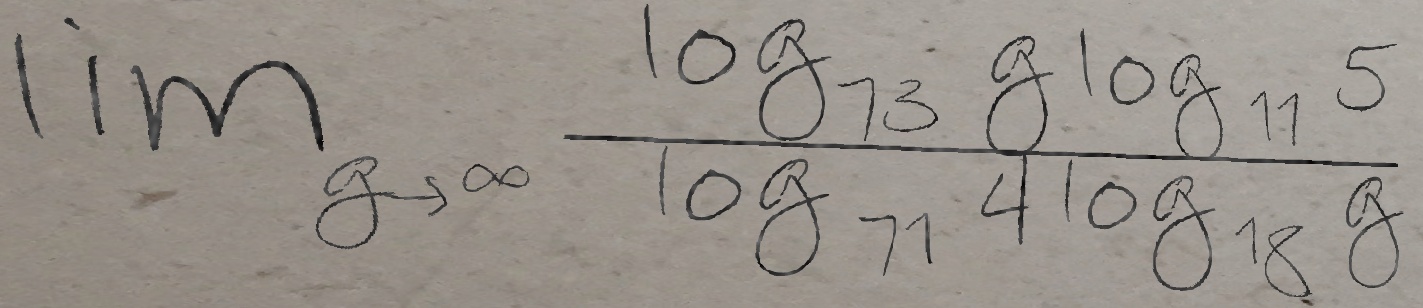 \lim_{g \to \infty} \frac{\log_{73} g \log_{11} 5}{\log_{71} 4 \log_{18} g}